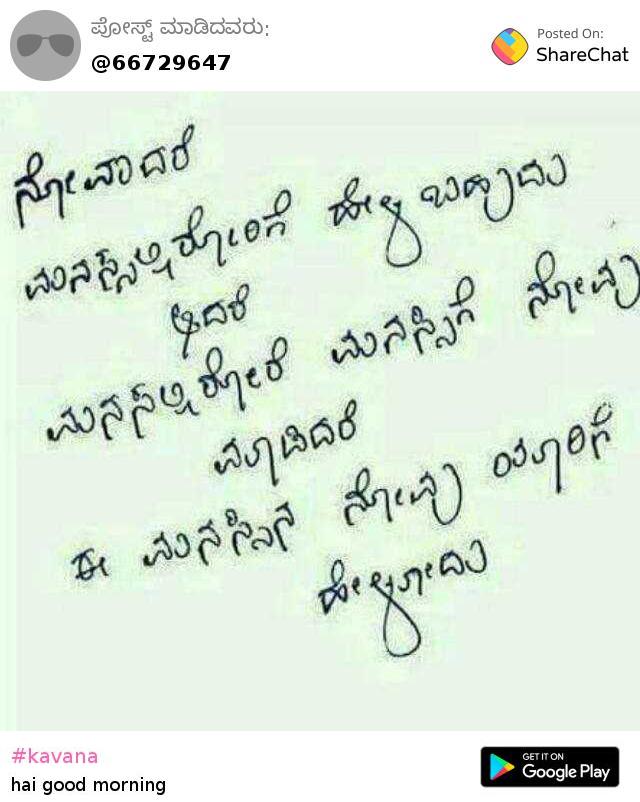 ಪೋಸ್ಟ್ ಮಾಡಿದವರು:
@66729647
Posted On:
ShareChat
ನೋವಾದರೆ
ಮನಸ್ಸಿನಲ್ಲಿರೋರಿಗೆ ಹೇಳ ಬಹುದು
ಆದರೆ
ಮನಸಲ್ಲಿರೋರೆ ಮನಸ್ಸಿಗೆ ನೋವು
ಮಾಡಿದರೆ
ಈ ಮನಸ್ಸಿನ ನೋವು ಯಾರಿಗೆ
ಹೇಳ್ಳೋದು
#kavana
hai good morning
GET IT ON
Google Play